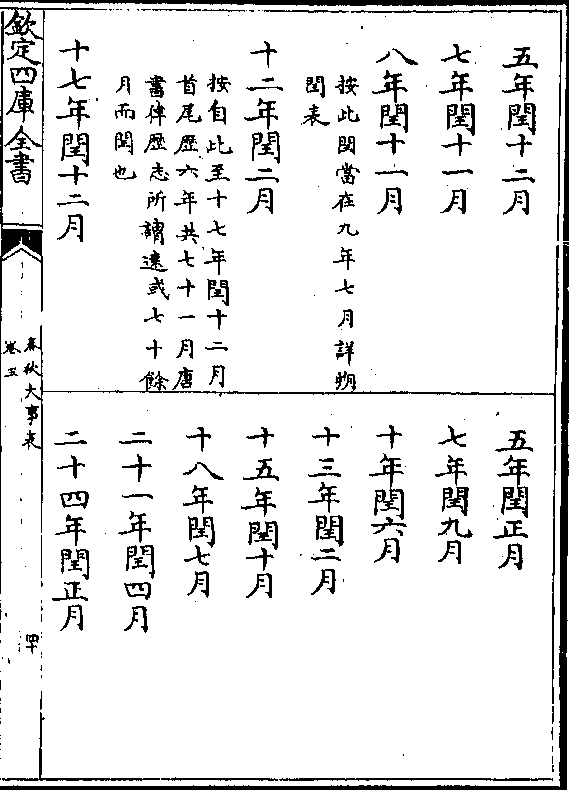 五年閏十二月
七年閏十一月
八年閏十一月
按此閏當在九年七月詳朔
閏表
十二年閏二月
按自此至十七年閏十二月
首尾歷六年共七十一月唐
書律歷志所謂遠或七十餘
月而閏也
十七年閏十二月
五年閏正月
七年閏九月
十年閏六月
十三年閏二月
十五年閏十月
十八年閏七月
二十一年閏四月
二十四年閏正月
欽定四庫全書
春秋大事表
卷五
四十